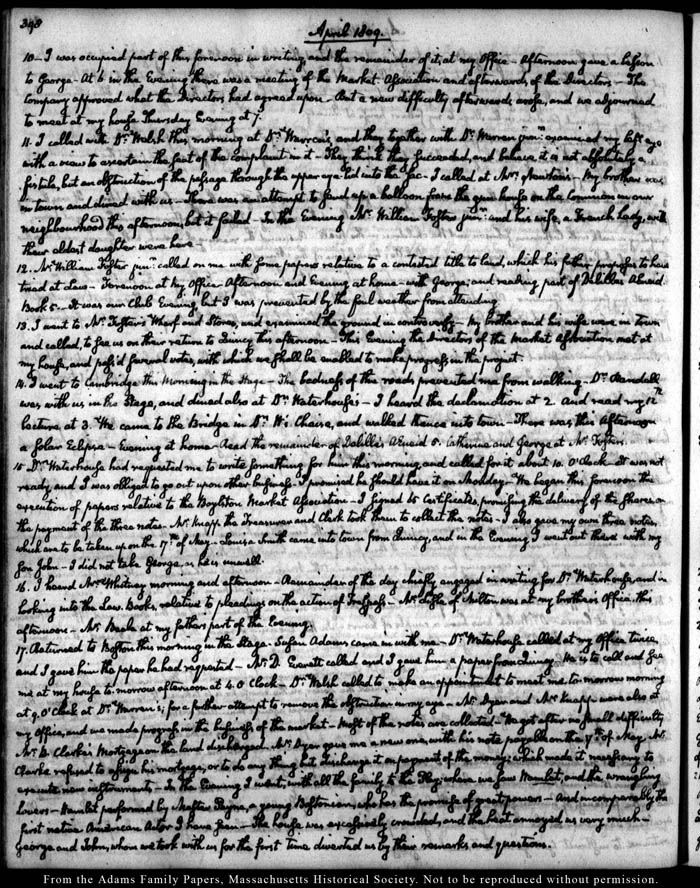 398
April 1809.
10. I was occupied part of this forenoon in writing, and the remainder of it, at my Office – Afternoon gave a lesson
to George – At 6 in the Evening there was a meeting of the Market Association and afterwards of the Directors – The
Company approved what the Directors had agreed upon – But a new difficulty afterwards arose, and we adjourned
to meet at my house Thursday Evening at 7.
11. I called with Dr. Welsh this morning at Dr. Warren's, and they together with Dr. Warren junr. examined my left eye
with a view to ascertain the seat of the complaint in it – They think they succeeded, and believe it is not absolutely a
fistula, but an obstruction of the passage through the upper eye-lid into the sac – I called at Mrs. Newton's – My brother was
in town and dined with us – There was an attempt to send up a balloon from the gun house on the Common in our
neighbourhood this afternoon, but it failed – In the Evening Mr. William Foster junr. and his wife, a French Lady, with
their eldest daughter were here.
12. Mr. William Foster junr. called on me with some papers relative to a contested title to land, which his father proposes to have
tried at Law – Forenoon at my Office – Afternoon and Evening at home – with George; and reading part of Delille's Aeneid
Book 5. It was our Club Evening but I was prevented by the foul weather from attending.
13. I went to Mr. Foster's Wharf and Stores, and examined the ground in controversy – My brother and his wife were in town
and called, to see us on their return to Quincy this afternoon – This Evening the Directors of the Market Association met at
my house, and pass'd several votes, with which we shall be enabled to make progress in the project.
14. I went to Cambridge this Morning in the Stage – The badness of the roads prevented me from walking – Dr. Randall
was with us in the Stage, and dined also at Dr. Waterhouse's – I heard the declamation at 2. And read my 12th
Lecture at 3. We came to the Bridge in Dr. W's Chaise, and walked thence into town – There was this Afternoon
a Solar Eclipse – Evening at home – Read the remainder of Delille's Aeneid 5. Catherine and George at Mr. Foster's.
15. Dr. Waterhouse had requested me to write something for him this morning, and called for it about 10. O'Clock – It was not
ready, and I was obliged to go out upon other business – I promised he should have it on Monday – We began this forenoon the
execution of papers relative to the Boylston Market Association – I signed 65 Certificates, promising the delivery of the shares, on
the payment of the three notes – Mr. Knapp the Treasurer and Clerk took them to collect the notes – I also gave my own three notes,
which are to be taken up on the 17th of May – Louisa Smith came into town from Quincy, and in the Evening I went out there with my
Son John – I did not take George, as he is unwell.
16. I heard Mr. Whitney morning and afternoon – Remainder of the day chiefly engaged in writing for Dr. Waterhouse, and in
looking into the Law Books, relative to pleadings on the action of Trespass – Mr. of Milton was at my brother's Office, this
afternoon – Mr. Beale at my father's part of the Evening.
17. Returned to Boston this morning in the Stage – Susan Adams came in with me – Dr. Waterhouse called at my Office twice,
and I gave him the paper he had requested – Mr. D. Everett called and I gave him a paper from Quincy – He is to call and see
me at my house to-morrow afternoon at 4. O Clock – Dr. Welsh called to make an appointment to meet me to-morrow morning
at 9. O'Clock at Dr. Warren's; for a further attempt to remove the obstruction in my eye – Mr. Dyer and Mr. Knapp were also at
my Office, and we made progress in the business of the market – Most of the notes are collected – We got after no small difficulty
Mr. B. Clarke's Mortgage on the land discharged. Mr. Dyer gave me a new one with his note payable on the 7th of May. Mr.
Clarke refused to assign his mortgage, or to do any thing but discharge it on payment of the money; which made it necessary to
execute new instruments – In the Evening I went, with all the family, to the Play; where we saw Hamlet, and the wrangling
lovers – Hamlet performed by Master Payne, a young Bostonian, who has the promise of great powers – And incomparably the
first native American Actor I have seen – The house was excessively crowded, and the heat annoyed us very much –
George and John, whom we took with us for the first time diverted us by their remarks and questions.
From the Adams Family Papers, Massachusetts Historical Society. Not to be reproduced without permission.